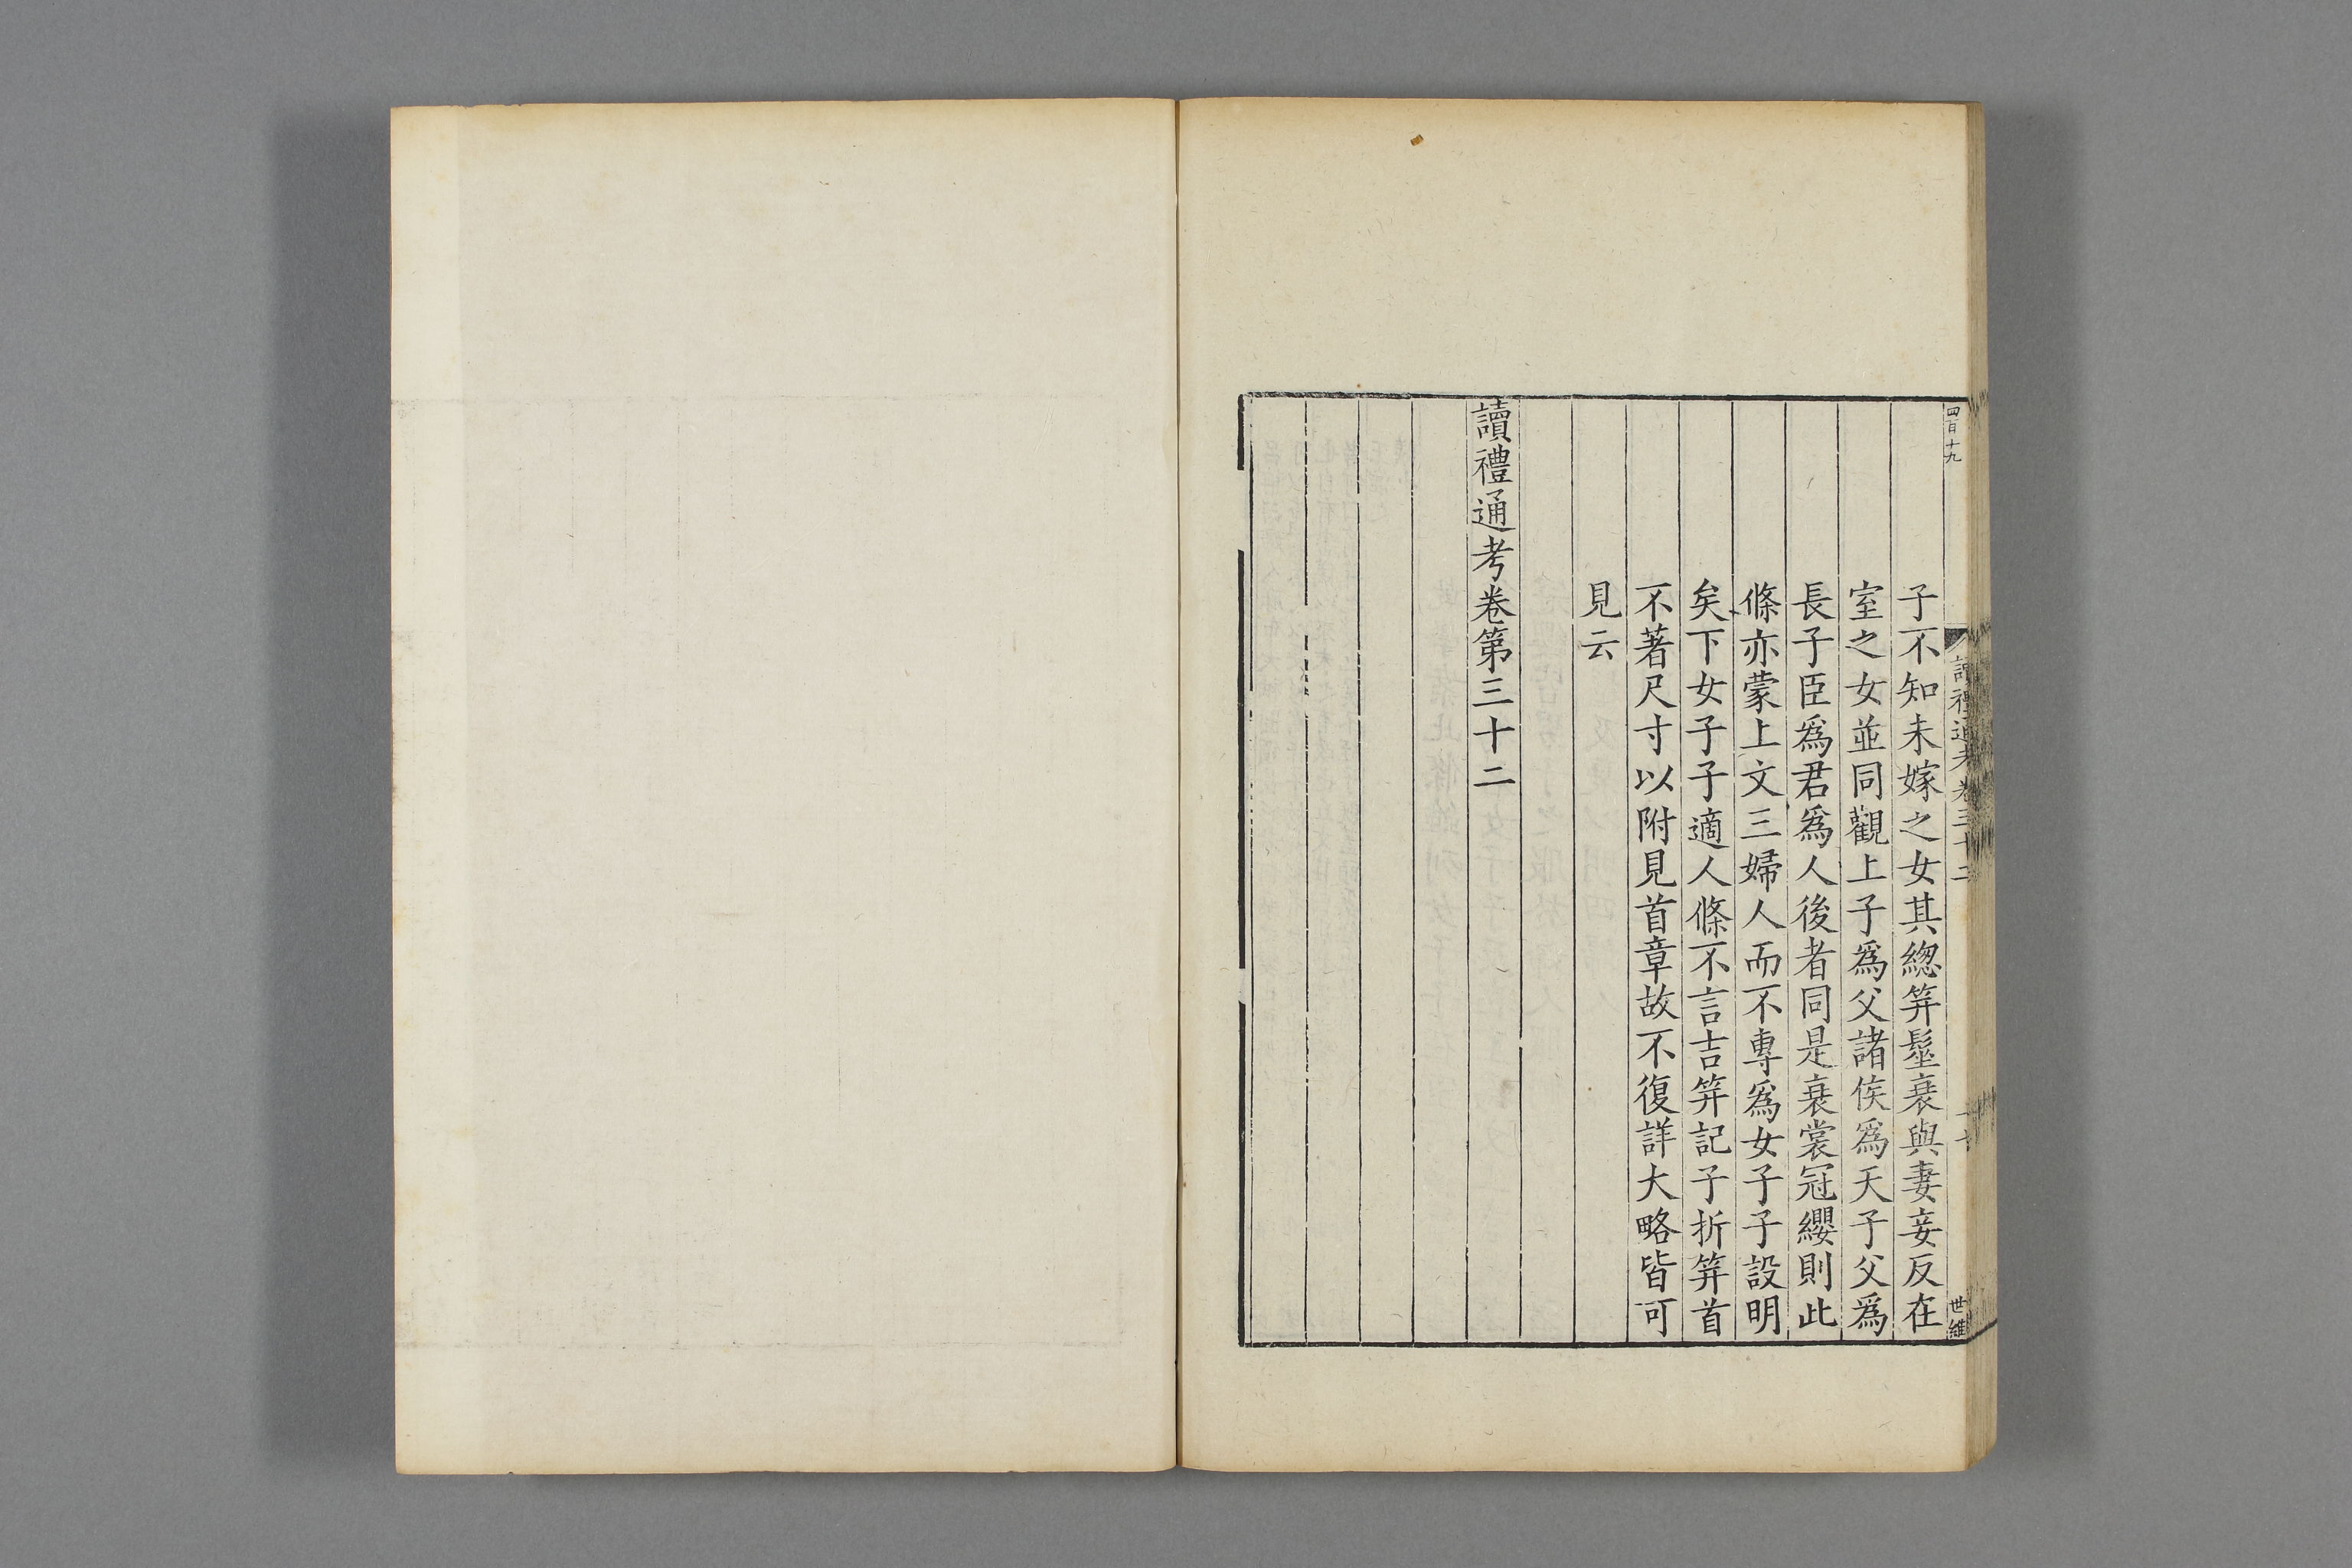 四百十九
讀禮通考卷三十二
世維
子不知未嫁之女其緫笄髽衰與妻妾反在
室之女並同觀上子爲父諸侯爲天子父爲
長子臣爲君爲人後者同是衰裳冠纓則此
條亦蒙上文三婦人而不專爲女子子設明
矣下女子子適人條不言吉笄記子折笄首
不著尺寸以附見首章故不復詳大略皆可
見云
讀禮通考卷第三十二